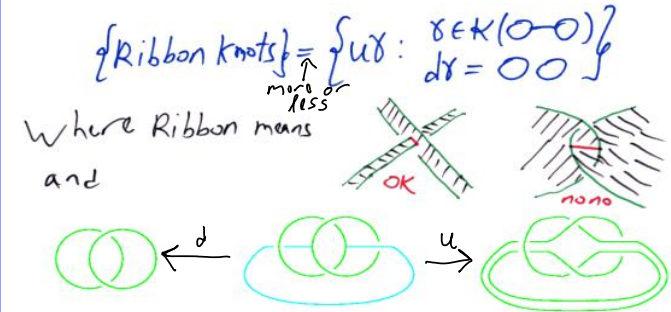 {Ribbon knots} = {uγ : γ∈K(O-O)
dγ = O O}
more or
less
Where Ribbon means
and
OK
no no
d
u